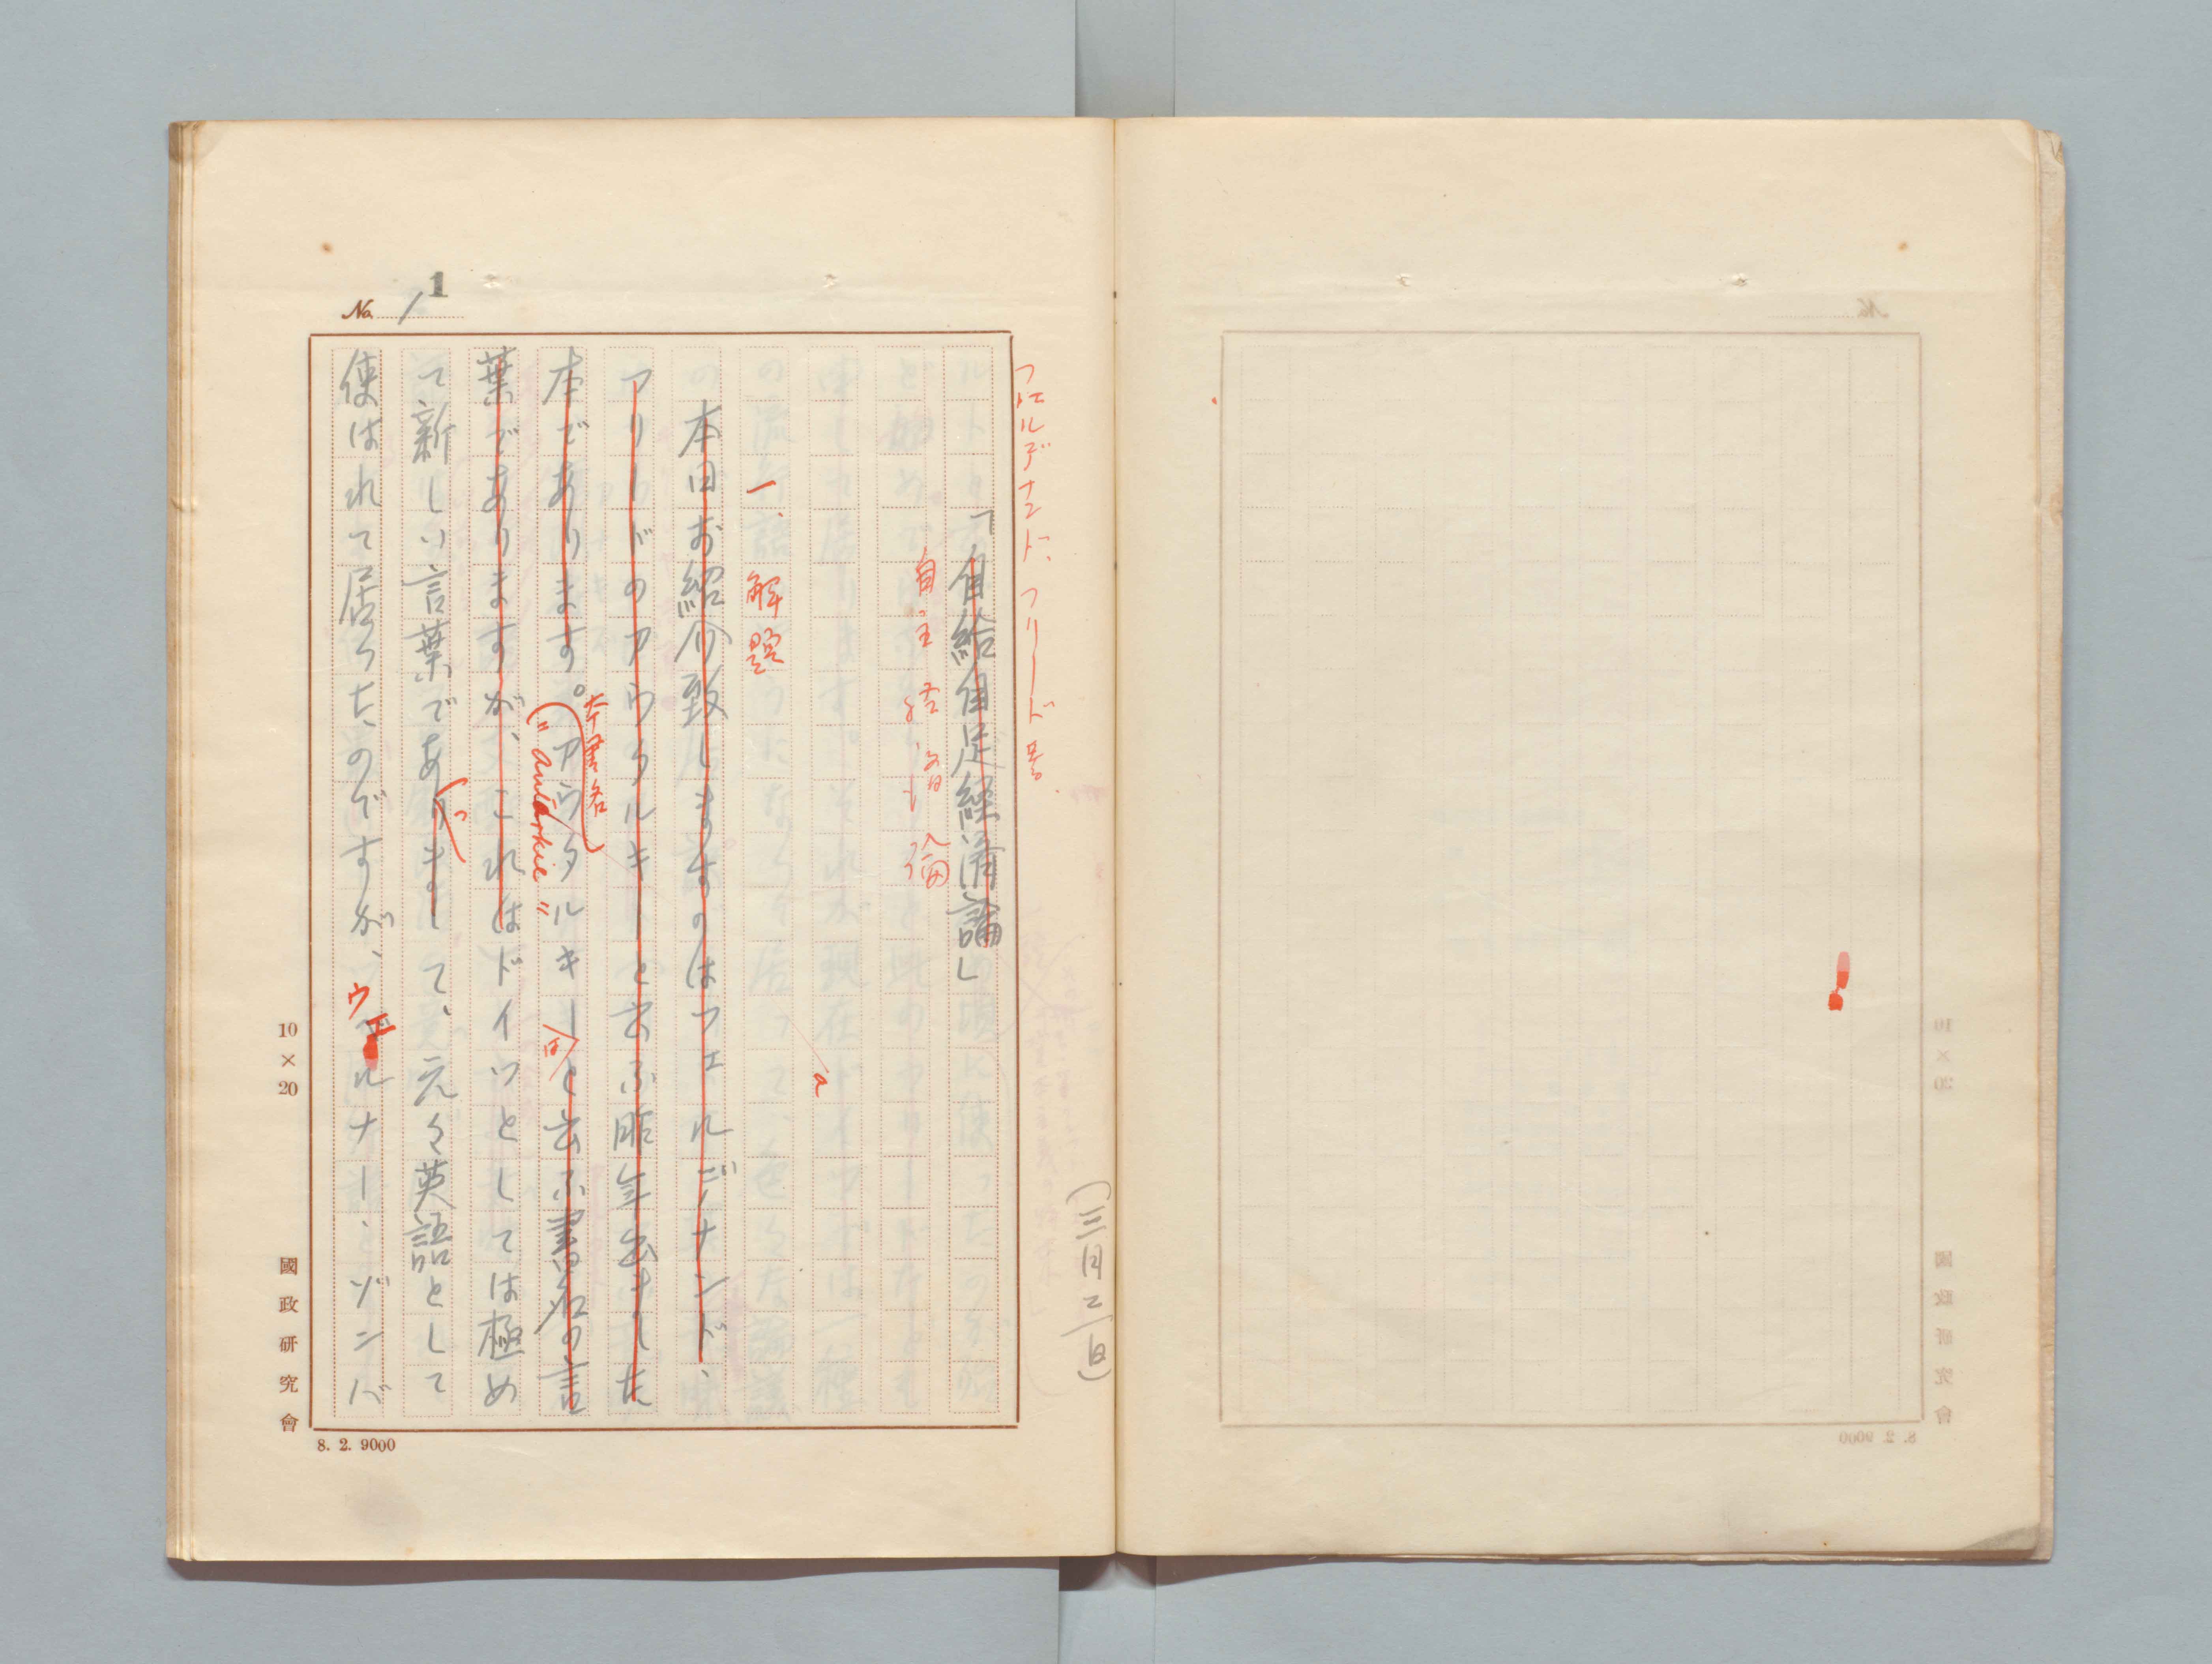 1
No. 1
(三月二日)
フェルデナンド、フリード著
「自給自足経済論」
自主経済論
一、解題
本日お紹介致しますのはフェルヂナンド、
フリードのアウタルキーと云ふ昨年出ました
本書名
本であります。アウタルキーはと云ふ書名の言
"autarkie"
葉でありますが、これはドイツとしては極め
て新しい言葉でありまして、元々英語として
っ
使はれて居つたのですが、ヴェルナー、ゾンバ
a
10×20
國政研究會
8. 2. 9000